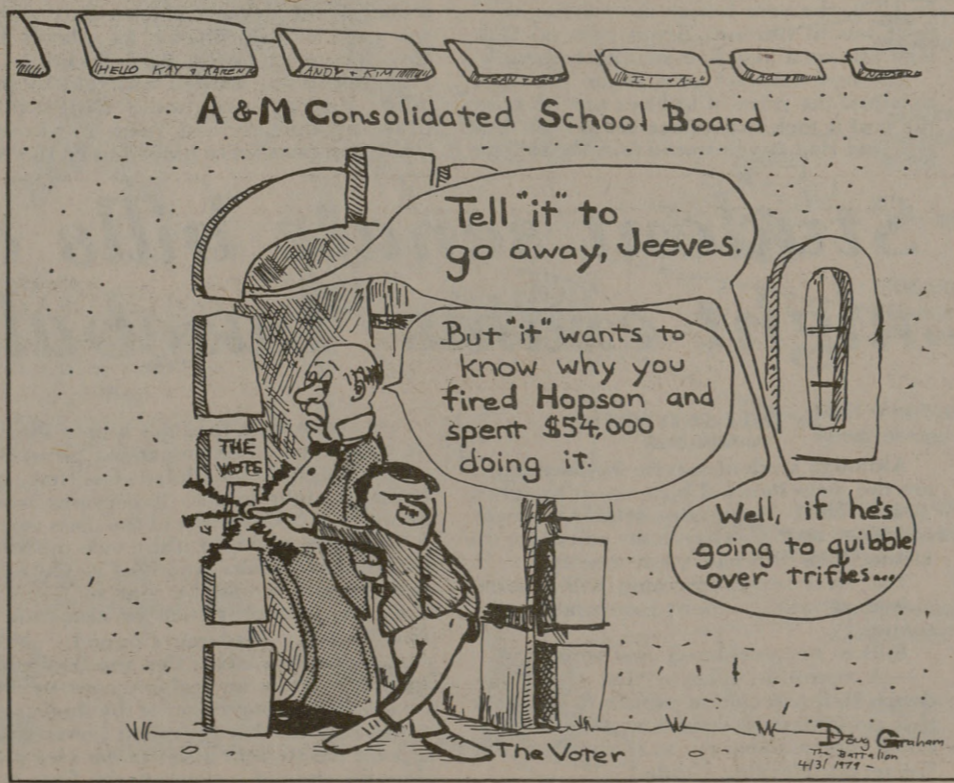 HELLO KAY & KAREN
ANDY + KIM
A & M Consolidated School Board
Tell "it" to
go away, Jeeves.
But "it" wants to
know why you
fired Hopson and
spent $54,000
doing it.
THE
VOTE
Well, if he's
going to quibble
over trifles...
The Voter
Doug Graham
The Battalion
4/3/1979